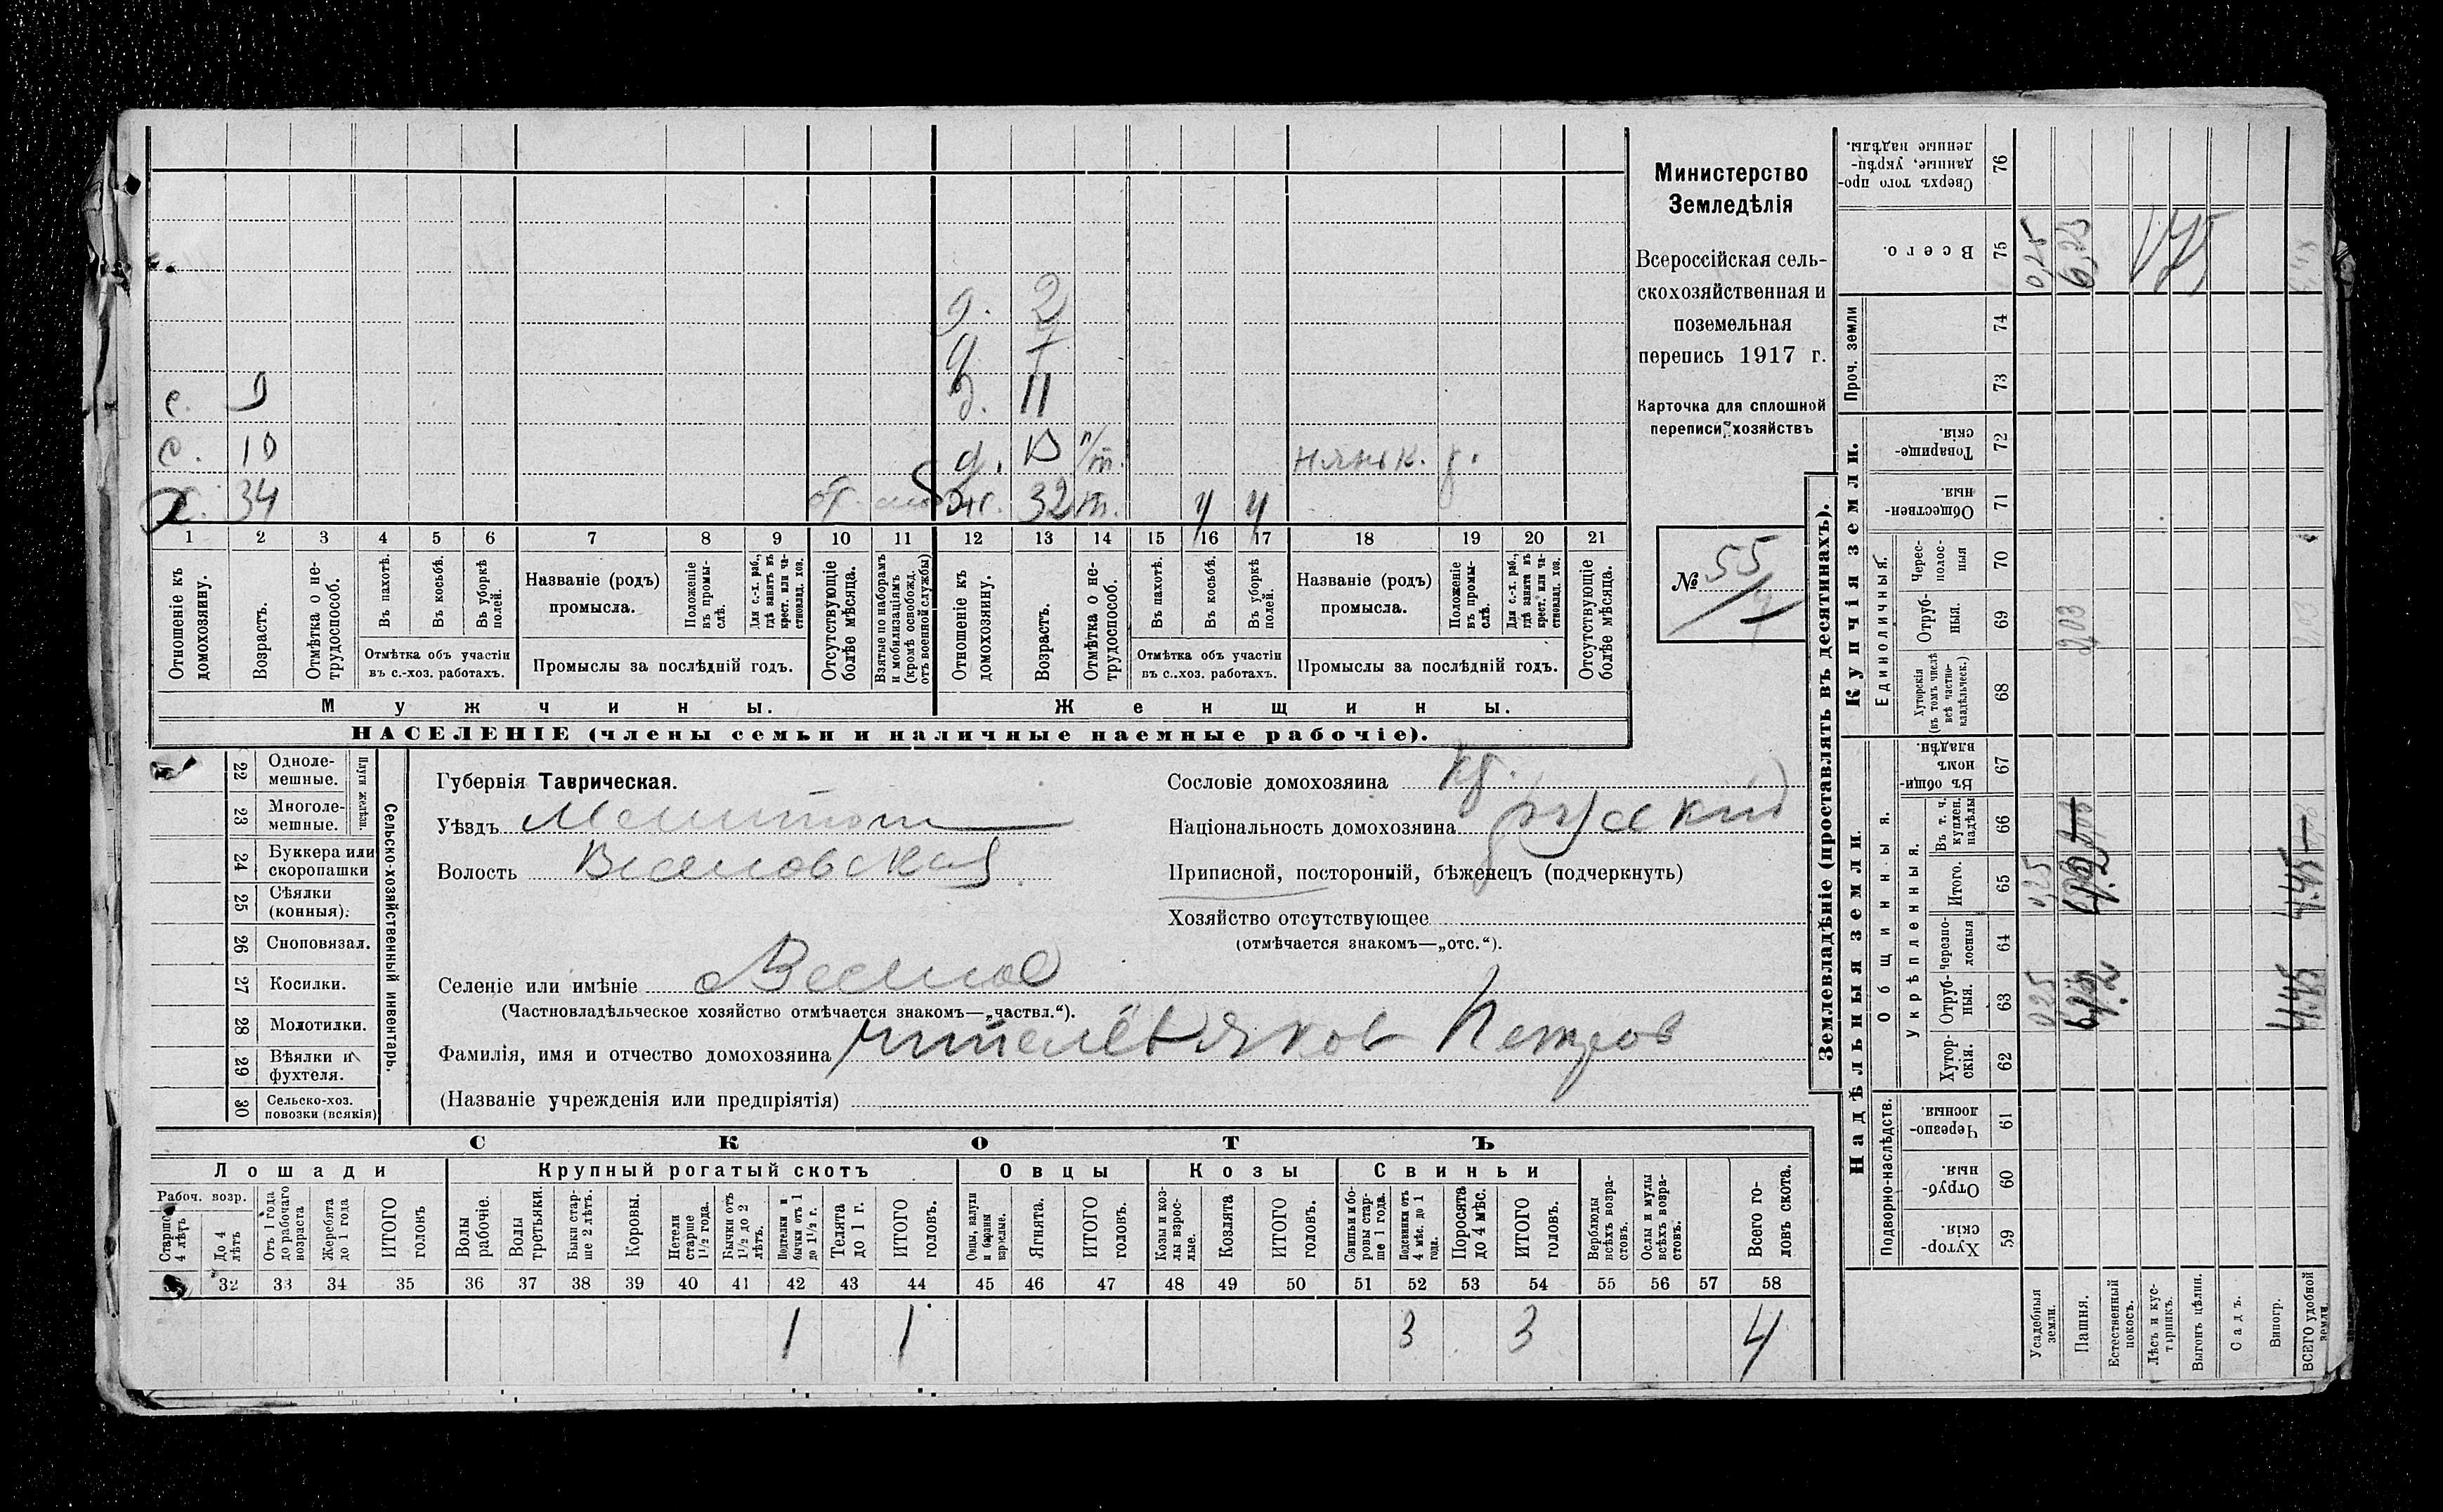 Министерство
Земледѣлія
Всероссійская сель-
скохозяйственная и
поземельная
перепись 1917 г.
Карточка для сплошной
переписи хозяйствъ
№ 55
д. 2
д.
с. 9 д. 11
с. 10 д. п/т. няньк.
х. 34 ж. 32 т. ч ч
1 2 3 4 5 6 7 8 9 10 11 12 13 14 15 16 17 18 19 20 21
Отношеніе къ домохозяину.
Возрастъ.
Отмѣтка о не-трудоспособ.
Въ пахотѣ.
Въ косьбѣ.
Въ уборкѣ полей.
Отмѣтка объ участіи въ с.-хоз. работахъ.
Названіе (родъ) промысла.
Положеніе въ промы-слѣ.
Для с.-х. раб., гдѣ занятъ въ крест. или ча-стновлад. хоз.
Промыслы за послѣдній годъ.
Отсутствующіе болѣе мѣсяца.
Взятые по наборамъ и мобилизаціямъ (кромѣ освобожд. отъ военной службы)
Отношеніе къ домохозяину.
Возрастъ.
Отмѣтка о не-трудоспособ.
Въ пахотѣ.
Въ косьбѣ.
Въ уборкѣ полей.
Отмѣтка объ участіи въ с..хоз. работахъ.
Названіе (родъ) промысла.
Положеніе въ промы-слѣ.
Для с.-х. раб., гдѣ занята въ крест. или ча-стновлад. хоз.
Промыслы за послѣдній годъ.
Отсутствующіе болѣе мѣсяца.
Мужчины. Женщины.
НАСЕЛЕНІЕ (члены семьи и наличные наемные рабочіе).
Сельско-хозяйственный инвентарь.
Плуги желѣзн.
22 Одноле-мешные.
23 Многоле-мешные.
24 Буккера или скоропашки
25 Сѣялки (конныя).
26 Сноповязал.
27 Косилки.
28 Молотилки.
29 Вѣялки и фухтеля.
30 Сельско-хоз. повозки (всякія)
Губернія Таврическая.
Уѣздъ Мелитоп
Волость Веселовская
Селеніе или имѣніе Веселое
(Частновладѣльческое хозяйство отмѣчается знакомъ—„частвл.“).
Фамилія, имя и отчество домохозяина Яков Петров
(Названіе учрежденія или предпріятія)
Сословіе домохозяина кр.
Національность домохозяина русский
Приписной, посторонній, бѣженецъ (подчеркнуть)
Хозяйство отсутствующее
(отмѣчается знакомъ—„отс.“).
СКОТЪ
Лошади Крупный рогатый скотъ Овцы Козы Свиньи
Рабоч. возр.
Старше 4 лѣтъ
До 4 лѣтъ
Отъ 1 года до рабочаго возраста
Жеребята до 1 года
ИТОГО головъ
Волы рабочіе.
Волы третьяки.
Быки стар-ше 2 лѣтъ.
Коровы.
Нетели старше 1½ года.
Бычки отъ 1½ до 2 лѣтъ.
Подтелки и бычки отъ 1 до 1½ г.
Телята до 1 г.
ИТОГО головъ.
Овцы, валухи и бараны взрослые.
Ягнята.
ИТОГО головъ.
Козы и коз-лы взрос-лые.
Козлята
ИТОГО головъ.
Свиньи и бо-ровы стар-ше 1 года.
Подсвинки отъ 4 мѣс. до 1 года.
Поросята до 4 мѣс.
ИТОГО головъ.
Верблюды всѣхъ возра-стовъ.
Ослы и мулы всѣхъ возра-стовъ.
Всего го-ловъ скота.
32 33 34 35 36 37 38 39 40 41 42 43 44 45 46 47 48 49 50 51 52 53 54 55 56 57 58
1 1 3 3 4
Землевладѣніе (проставлять въ десятинахъ).
Надѣльныя земли.
Купчія земли.
Проч. земли
Подворно-наслѣдств.
Общинныя.
Укрѣпленныя.
Единоличныя.
59 Хутор-скія.
60 Отруб-ныя.
61 Черезпо-лосныя
62 Хутор-скія.
63 Отруб-ныя.
64 Черезпо-лосныя
65 Итого.
66 Въ т. ч. куплен. надѣлы
67 Въ общи-номъ владѣн.
68 Хуторскія (въ томъ числѣ всѣ частно-владѣльческ.)
69 Отруб-ныя.
70 Черес-полос-ныя
71 Обществен-ныя.
72 Товарище-скія.
73
74
75 Всего.
76 Сверхъ того про-данные, укрѣп-ленные надѣлы.
Усадебныя земли. 0,25 0,25 0,25
Пашня. 4.2 4.2 2,03 6,23
Естественный покосъ.
Лѣсъ и кус-тарникъ.
Выгонъ цѣлин.
Садъ.
Виногр.
ВСЕГО удобной земли. 4.45 4.45 2,03